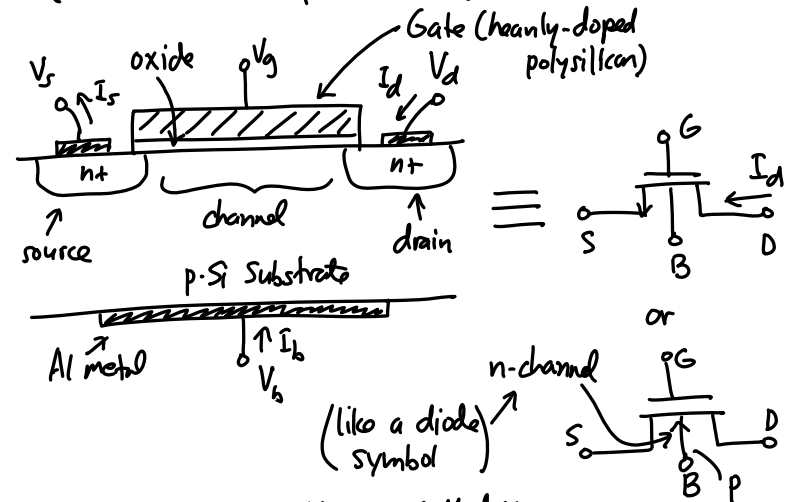 Gate (heavily-doped
polysilicon)
oxide
Vg
Vs
Is
Id
Vd
n+
n+
channel
source
drain
p-Si Substrate
Al metal
Ib
Vb
G
Id
S
B
D
or
n-channel
(like a diode
symbol)
G
S
D
B
p